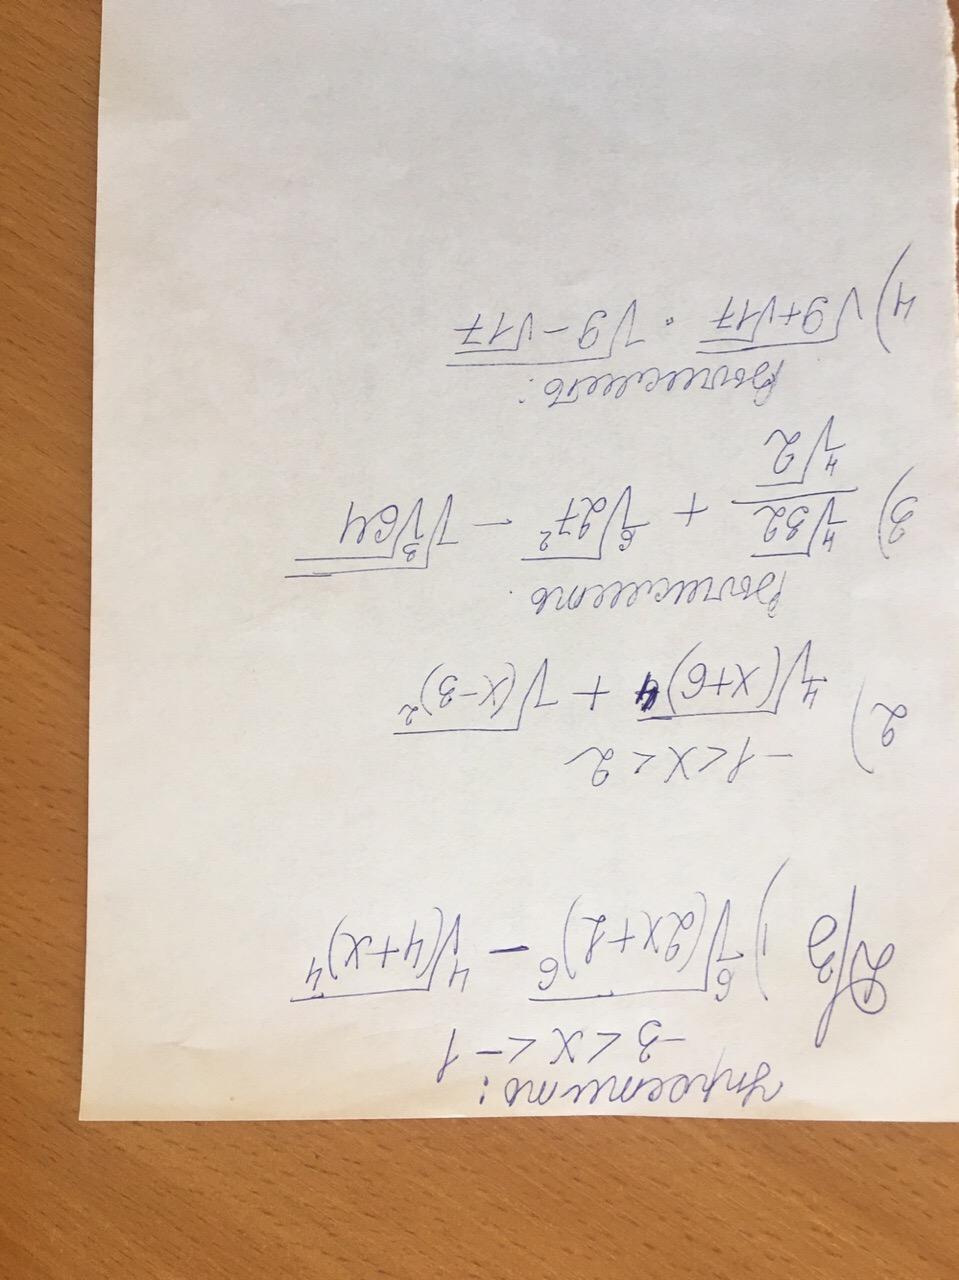 Упростить:
-3 < x < -1
Д/з 1) ⁶√(2x+2)⁶ - ⁴√(4+x)⁴
-1 < x < 2
2) ⁴√(x+6)⁴ + √(x-3)²
Вычислить
3) ⁴√32 / ⁴√2 + ⁶√27² - √³√64
Вычислить:
4) √9+√17 · √9-√17